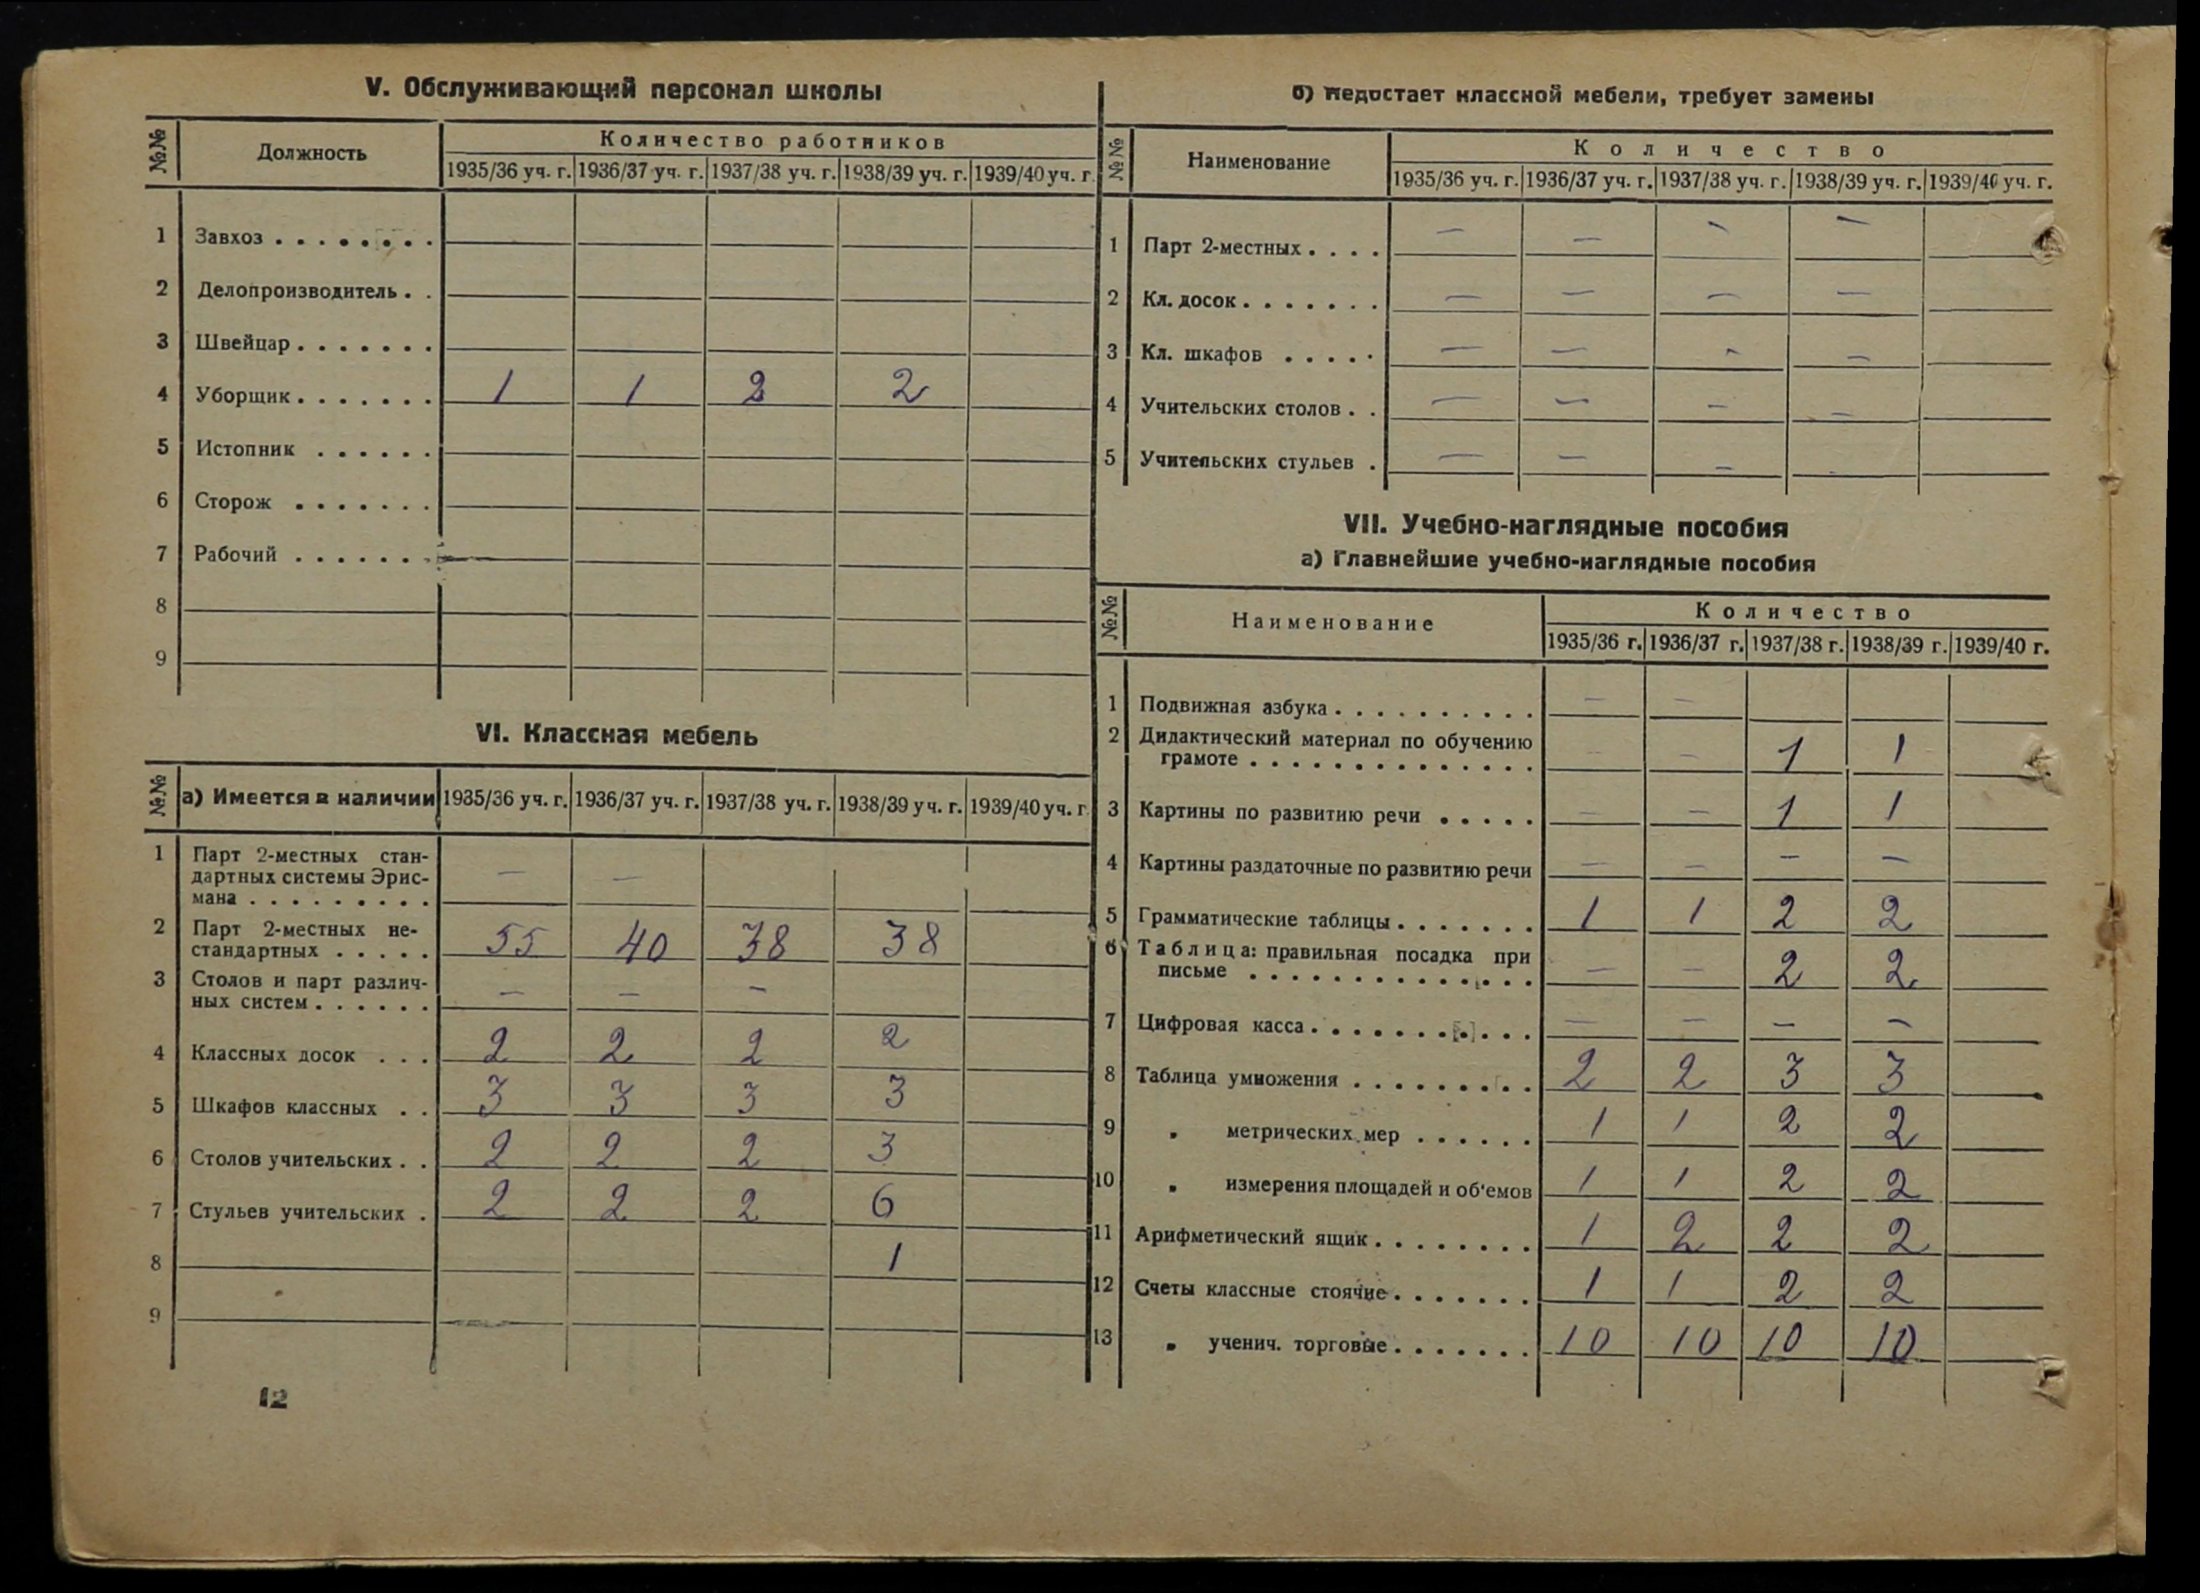 V. Обслуживающий персонал школы
№№ Должность Количество работников
1935/36 уч. г. 1936/37 уч. г. 1937/38 уч. г. 1938/39 уч. г. 1939/40 уч. г.
1 Завхоз . . . . . . . .
2 Делопроизводитель . .
3 Швейцар . . . . . . .
4 Уборщик . . . . . . . 1 1 2 2
5 Истопник . . . . . .
6 Сторож . . . . . . .
7 Рабочий . . . . . . .
8
9
VI. Классная мебель
№№ а) Имеется в наличии 1935/36 уч. г. 1936/37 уч. г. 1937/38 уч. г. 1938/39 уч. г. 1939/40 уч. г
1 Парт 2-местных стан-
дартных системы Эрис-
мана . . . . . . . . . — —
2 Парт 2-местных не-
стандартных . . . . . 55 40 38 38
3 Столов и парт различ-
ных систем . . . . . . — — —
4 Классных досок . . . 2 2 2 2
5 Шкафов классных . . 3 3 3 3
6 Столов учительских . . 2 2 2 3
7 Стульев учительских . 2 2 2 6
8 1
9
12
б) Недостает классной мебели, требует замены
№№ Наименование Количество
1935/36 уч. г. 1936/37 уч. г. 1937/38 уч. г. 1938/39 уч. г. 1939/40 уч. г.
1 Парт 2-местных . . . . — — — —
2 Кл. досок . . . . . . . — — — —
3 Кл. шкафов . . . . . — — — —
4 Учительских столов . . — — — —
5 Учительских стульев . — — — —
VII. Учебно-наглядные пособия
а) Главнейшие учебно-наглядные пособия
№№ Наименование Количество
1935/36 г. 1936/37 г. 1937/38 г. 1938/39 г. 1939/40 г.
1 Подвижная азбука . . . . . . . . . . — —
2 Дидактический материал по обучению
грамоте . . . . . . . . . . . . . . — — 1 1
3 Картины по развитию речи . . . . . — — 1 1
4 Картины раздаточные по развитию речи — — — —
5 Грамматические таблицы . . . . . . . 1 1 2 2
6 Таблица: правильная посадка при
письме . . . . . . . . . . . . . . — — 2 2
7 Цифровая касса . . . . . . . . . . . — — — —
8 Таблица умножения . . . . . . . . . 2 2 3 3
9 „ метрических мер . . . . . . 1 1 2 2
10 „ измерения площадей и об'емов 1 1 2 2
11 Арифметический ящик . . . . . . . . 1 2 2 2
12 Счеты классные стоячие . . . . . . . 1 1 2 2
13 „ ученич. торговые . . . . . . . 10 10 10 10